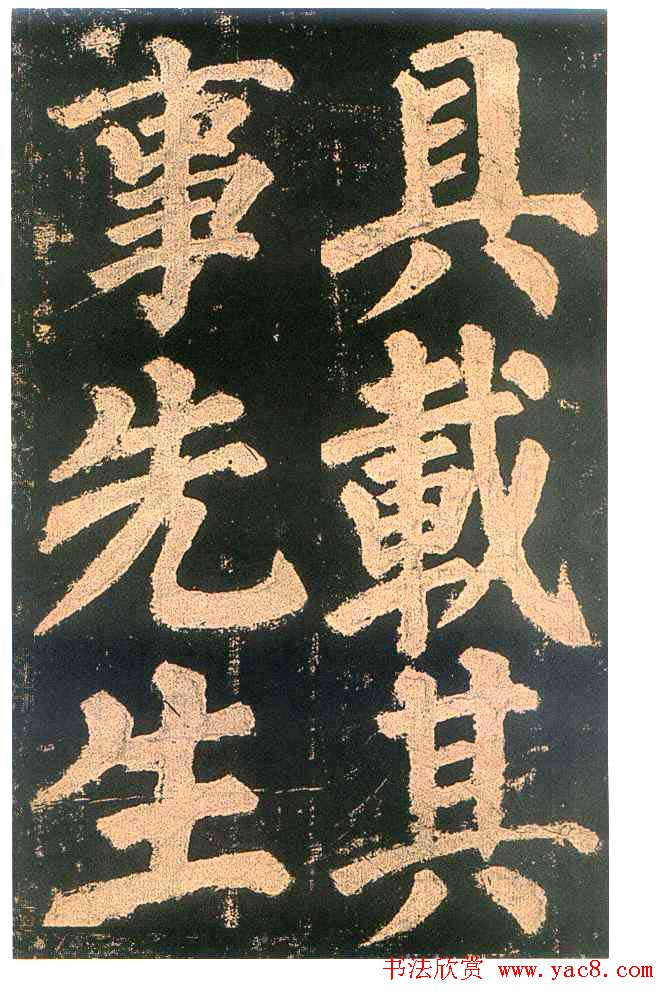 具載其
事先生
书法欣赏 www.yac8.com